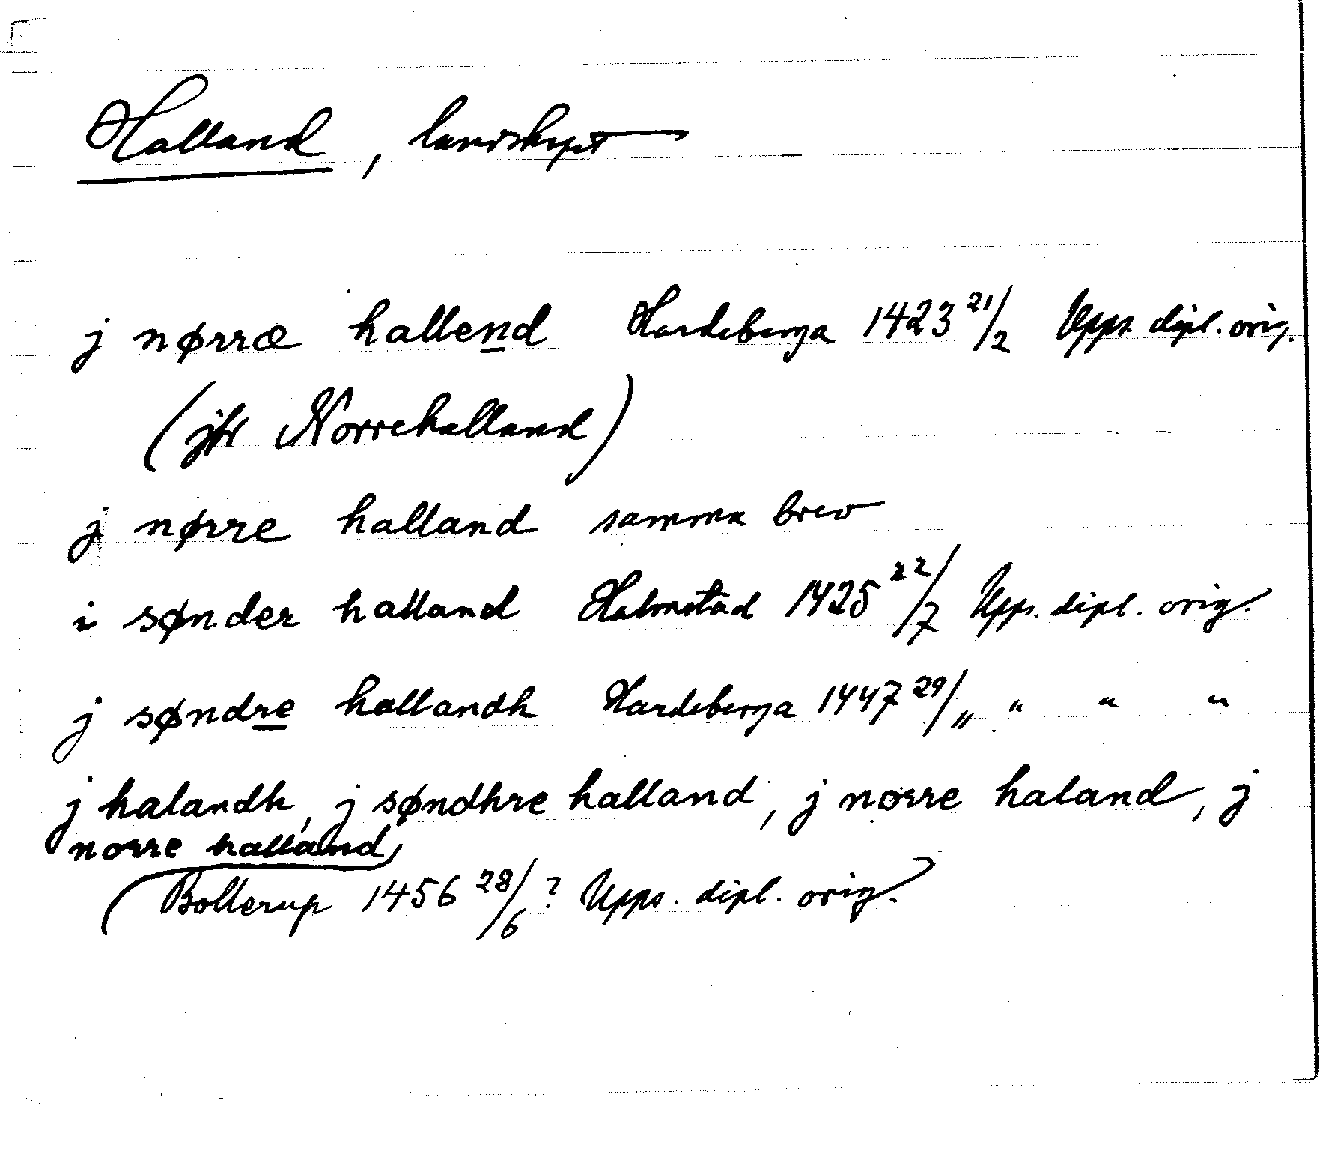 Halland, landskap
j nørræ hallend Hardeberga 1423 21/2 Upps. dipl. orig.
(jfr Norrehalland)
j nørre halland samma brev
i sønder halland Halmstad 1425 22/7 Upps. dipl. orig.
j søndre hallandh Hardeberga 1447 29/11 " " "
j halandh, j søndhre halland, j norre haland, j
norre halland,
Bollerup 1456 28/6? Upps. dipl. orig.